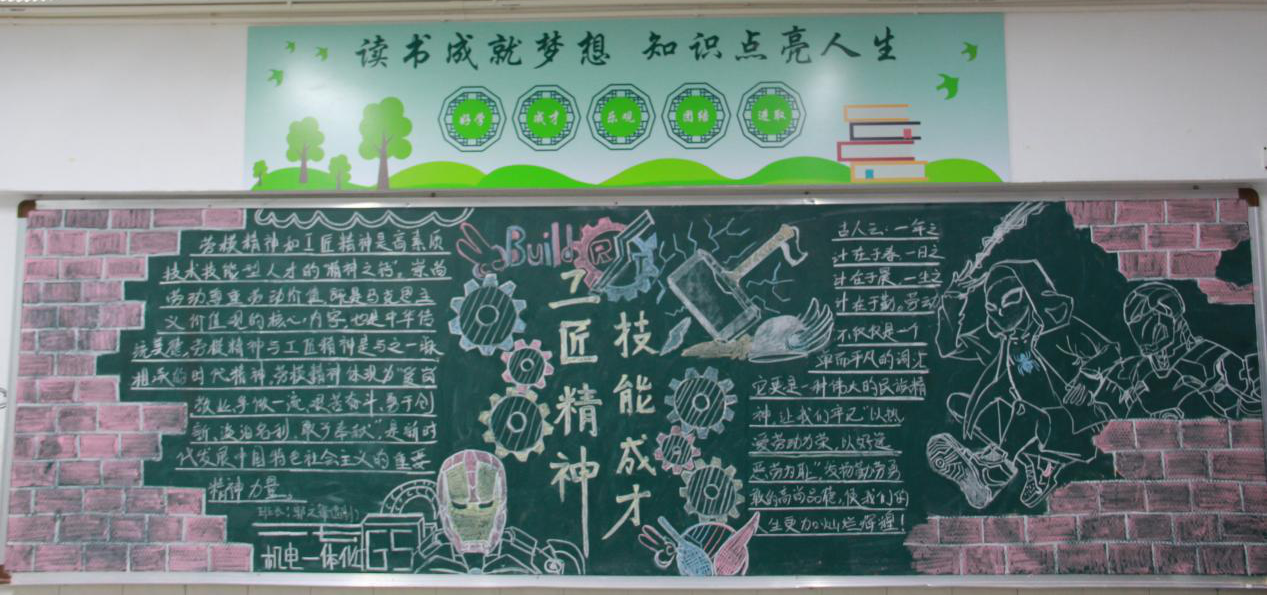 读书成就梦想 知识点亮人生
好学 成才 乐观 团结 进取
Build
工匠精神
技能成才
劳模精神和工匠精神是高素质
技术技能型人才的"精神之钙"。崇尚
劳动尊重劳动价值,既是马克思主
义价值观的核心内容,也是中华传
统美德,劳模精神与工匠精神是与之一脉
相承的时代精神,劳模精神体现为"爱岗
敬业争做一流,艰苦奋斗,勇于创
新,淡泊名利,敢于奉献"是新时
代发展中国特色社会主义的重要
精神力量。
机电一体化G5
古人云:一年之
计在于春,一日之
计在于晨,一生之
计在于勤。劳动
不仅仅是一个
平凡的词汇
它更是一种伟大的民族精
神,让我们牢记"以热
爱劳动为荣,以好逸
恶劳为耻"发扬勤劳勇
敢的高尚品德,使我们的
人生更加灿烂辉煌!